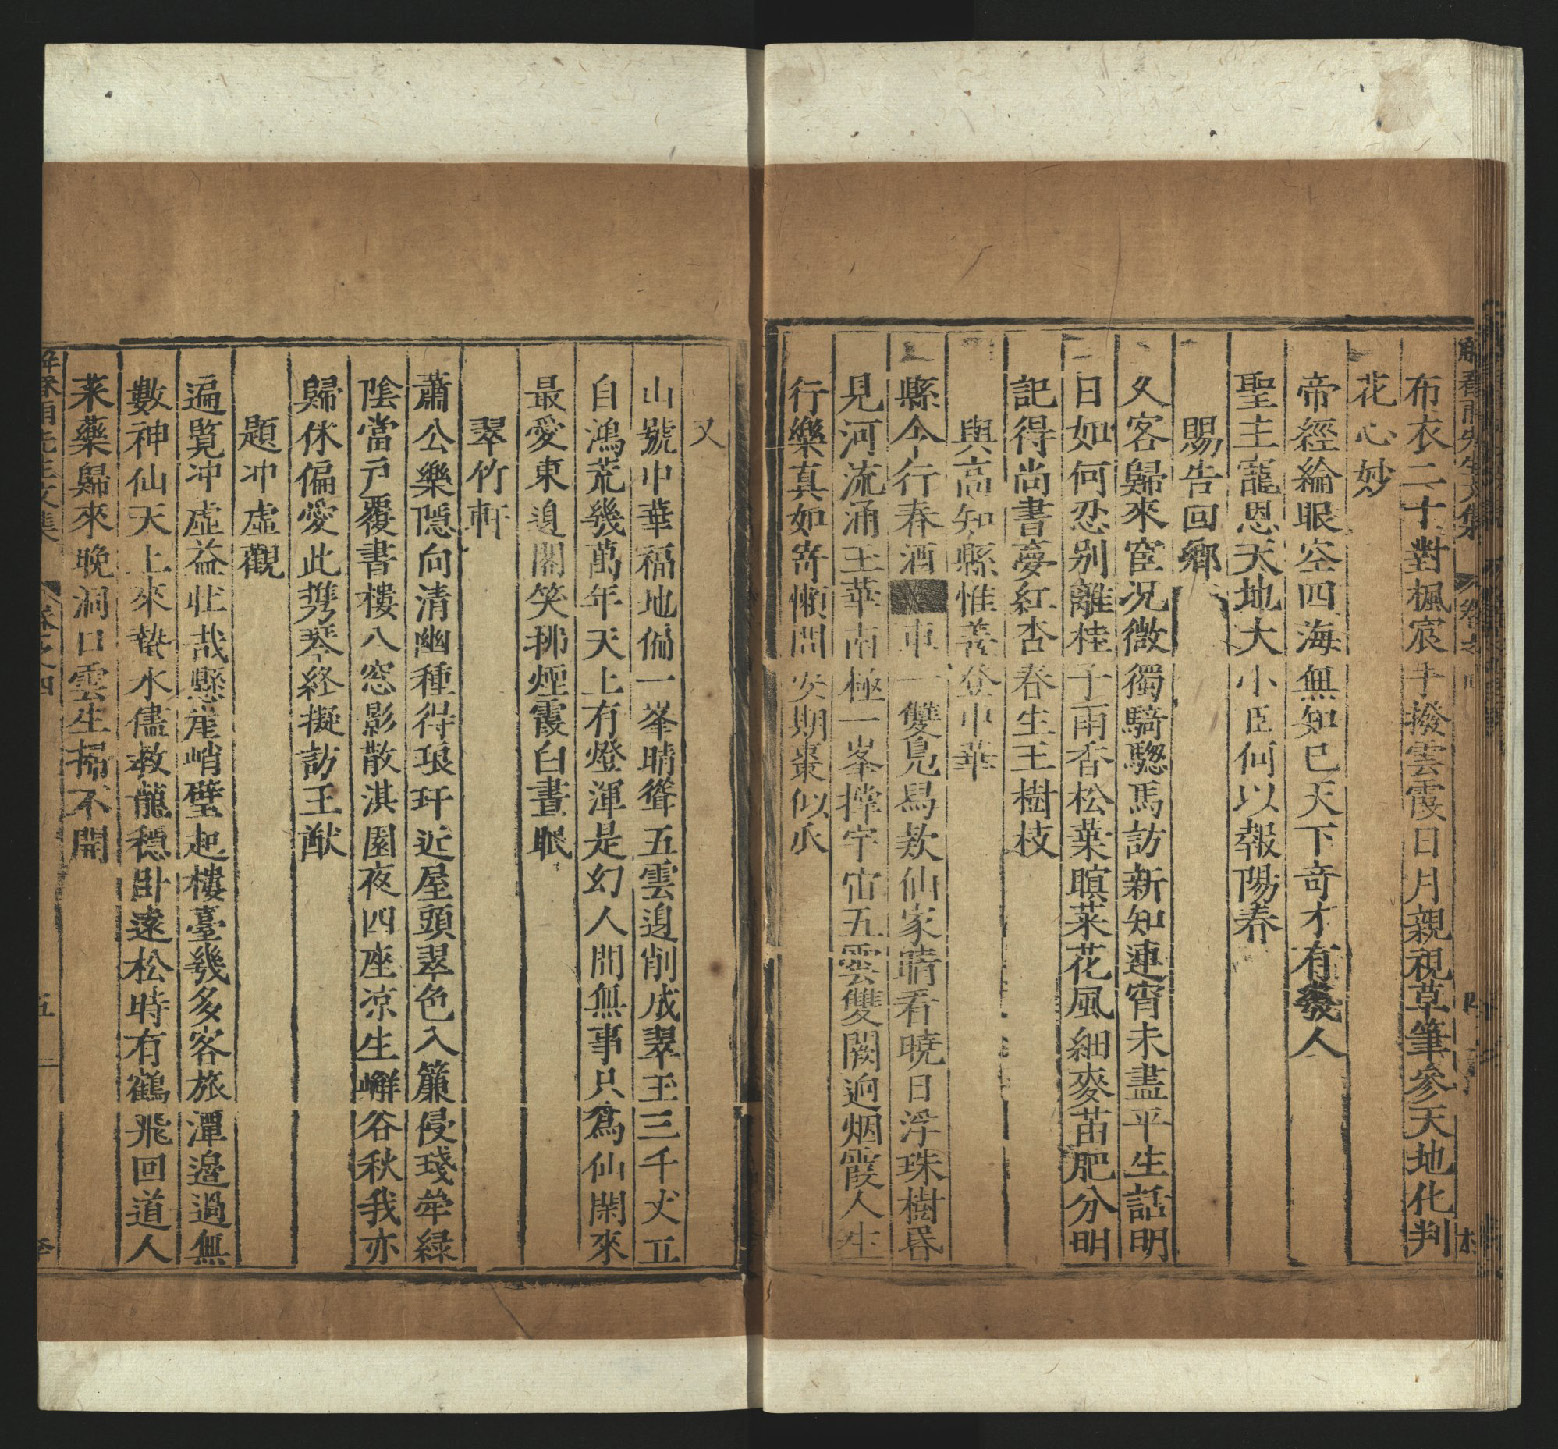 布衣二十對楓宸手撥雲霞日月親視草筆參天地化判
花心妙
帝經綸眼空四海無知已天下奇才有幾人
聖主寵恩天地大小臣何以報陽春
賜告回鄉
久客歸來宦况微獨騎驄馬訪新知連宵未盡平生話明
日如何忍别離桂子雨香松葉暝菜花風細麥苗肥分明
記得尚書夢紅杏春生玉樹枝
與高知縣惟善登中華
縣令行春酒車一雙鳬舄款仙家晴看曉日浮珠樹
見河流涌玉華南極一峯撑宇宙五雲雙闕逈烟霞人生
行樂真如寄懶問安期棗似瓜
又
山號中華福地偏一峯晴聳五雲邉削成翠玉三千丈
自鴻荒幾萬年天上有燈渾是幻人間無事只爲仙閑來
最愛東邉閣笑拂煙霞白晝眠
翠竹軒
蕭公樂隱向清幽種得琅玕近屋頭翠色入簾侵琖緑
陰當戸覆書樓八窓影散淇園夜四座凉生嶰谷秋我亦
歸休偏愛此携琴終擬訪王猷
題冲虚觀
遍覽冲虚益壯哉懸崖峭壁起樓臺幾多客旅潭邉過無
數神仙天上來蟄水儘教龍穩卧遠松時有鶴飛回道人
采藥歸來晚洞口雲生掃不開
解春雨先生文集
卷之四
五